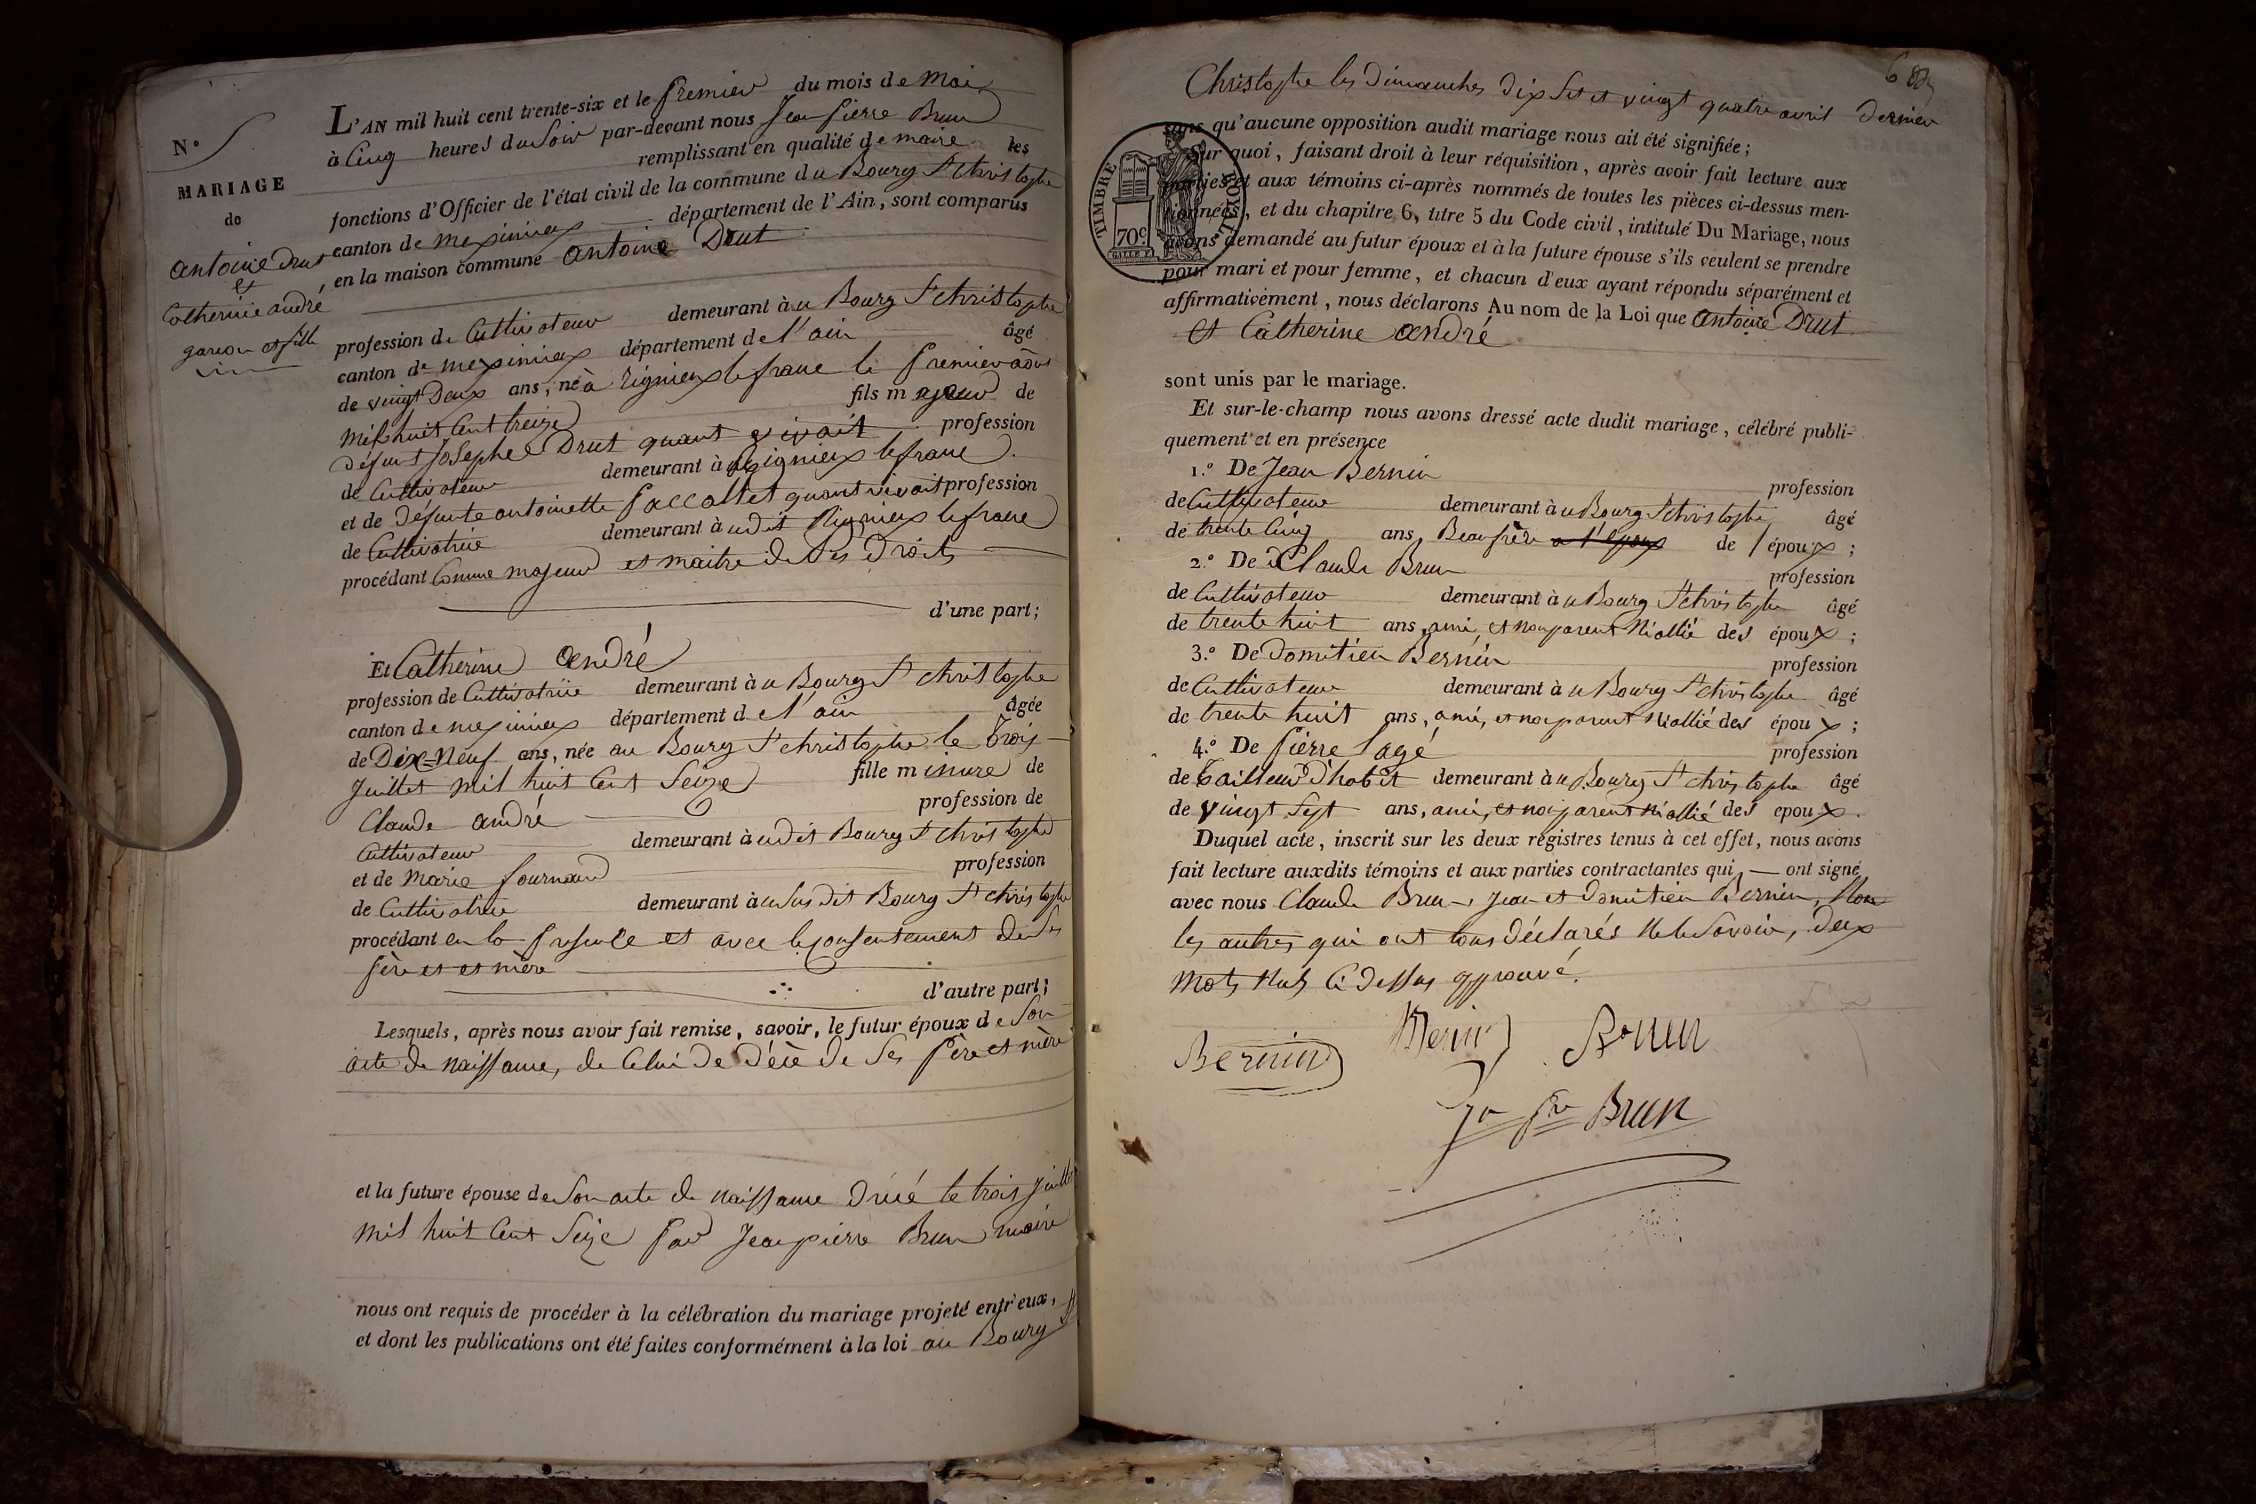 N.º
MARIAGE
de
Antoine Drut
et
Catherine andré
garçon et fille
L'AN mil huit cent trente-six et le premier du mois de Mai
à Cinq heures du Soir par-devant nous Jean pierre Brun
remplissant en qualité de maire les
fonctions d'Officier de l'état civil de la commune du Bourg St Christophe
canton de meximieux département de l'Ain, sont comparus
en la maison commune Antoine Drut
profession de Cultivateur demeurant à u Bourg St Christophe
canton de meximieux département de l'ain âgé
de vingt Deux ans, né à Rignieux le franc le premier août
mil huit Cent treize fils majeur de
défunt Josephe Drut quant vivait profession
de Cultivateur demeurant à Rignieux le franc
et de Défunte antoinette paccallet quant vivait profession
de Cultivatrice demeurant à udit Rignieux le franc
procédant Comme majeur et maitre de Ses Droits
d'une part;
Et Catherine andré
profession de Cultivatrice demeurant à u Bourg St christophe
canton de meximieux département de l'ain âgée
de Dix-Neuf ans, née au Bourg St christophe le trois
Juillet mil huit Cent Seize fille minure de
Claude andré profession de
Cultivateur demeurant à udit Bourg St christophe
et de Marie fournand profession
de Cultivatrice demeurant à u Susdit Bourg St christophe
procédant en la presence et avec le consentement de Ses
père et et mère
d'autre part;
Lesquels, après nous avoir fait remise, savoir, le futur époux de Son
acte de naissance, de Celui de Décè de Ses père et mère
et la future épouse de Son acte de naissance Dréé le trois Juillet
mil huit Cent Seize par Jean pierre Brun maire
nous ont requis de procéder à la célébration du mariage projeté entr'eux,
et dont les publications ont été faites conformément à la loi au Bourg St
Christophe les Dimanches Dix Set et vingt quatre avril Dernier
sans qu'aucune opposition audit mariage nous ait été signifiée;
TIMBRE ROYAL
70c
Sur quoi, faisant droit à leur réquisition, après avoir fait lecture aux
parties et aux témoins ci-après nommés de toutes les pièces ci-dessus men-
tionnées, et du chapitre 6, titre 5 du Code civil, intitulé Du Mariage, nous
avons demandé au futur époux et à la future épouse s'ils veulent se prendre
pour mari et pour femme, et chacun d'eux ayant répondu séparément et
affirmativement, nous déclarons Au nom de la Loi que Antoine Drut
Et Catherine andré
sont unis par le mariage.
Et sur-le-champ nous avons dressé acte dudit mariage, célébré publi-
quement et en présence
1.º De Jean Bernin profession
de Cultivateur demeurant à u Bourg St christophe âgé
de trente Cinq ans Beau frère a l'époux de l'époux;
2.º De Claude Brun profession
de Cultivateur demeurant à u Bourg St christophe âgé
de trente huit ans, ami, et non parent Ni allié des époux;
3.º De Domitien Bernin profession
de Cultivateur demeurant à u Bourg St christophe âgé
de trente huit ans, ami, et non parent Ni allié des époux;
4.º De pierre Sagé profession
de tailleur D'habit demeurant à u Bourg St christophe âgé
de vingt Sept ans, ami, et non parent Ni allié des epoux.
Duquel acte, inscrit sur les deux registres tenus à cet effet, nous avons
fait lecture auxdits témoins et aux parties contractantes qui ont signé
avec nous Claude Brun, Jean et Domitien Bernin, Non
les autres qui ont tous déclarés Ne le Savoir, Deux
Mots Nuls Ci Dessus approuvé.
Bernin Bernin Brun
Jn pre Brun